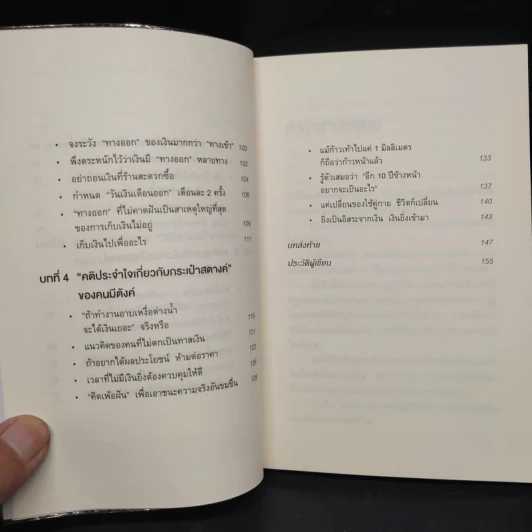 • จงระวัง "ทางออก" ของเงินมากกว่า "ทางเข้า" 100
• พึงตระหนักไว้ว่าเงินมี "ทางออก" หลายทาง 102
• อย่าถอนเงินที่ร้านสะดวกซื้อ 104
• กำหนด "วันเงินเดือนออก" เดือนละ 2 ครั้ง 106
• "ทางออก" ที่ไม่คาดฝันเป็นสาเหตุใหญ่ที่สุด
ของการเก็บเงินไม่อยู่ 108
• เก็บเงินไปเพื่ออะไร 111
บทที่ 4 "คติประจำใจเกี่ยวกับกระเป๋าสตางค์"
ของคนมีตังค์
• "ถ้าทำงานอาบเหงื่อต่างน้ำ
จะได้เงินเยอะ" จริงหรือ 119
• แนวคิดของคนที่ไม่ตกเป็นทาสเงิน 121
• ถ้าอยากได้ผลประโยชน์ ห้ามต่อราคา 123
• เวลาที่ไม่มีเงินยิ่งต้องควบคุมให้ดี 125
• "คิดเพ้อฝัน" เพื่อเอาชนะความจริงอันขมขื่น 128
• แม้ก้าวเท้าไปแค่ 1 มิลลิเมตร
ก็ถือว่าก้าวหน้าแล้ว 133
• รู้ตัวเสมอว่า "อีก 10 ปีข้างหน้า
อยากจะเป็นอะไร" 137
• แค่เปลี่ยนของใช้คู่กาย ชีวิตก็เปลี่ยน 140
• ยิ่งเป็นอิสระจากเงิน เงินยิ่งเข้ามา 143
บทส่งท้าย 147
ประวัติผู้เขียน 155